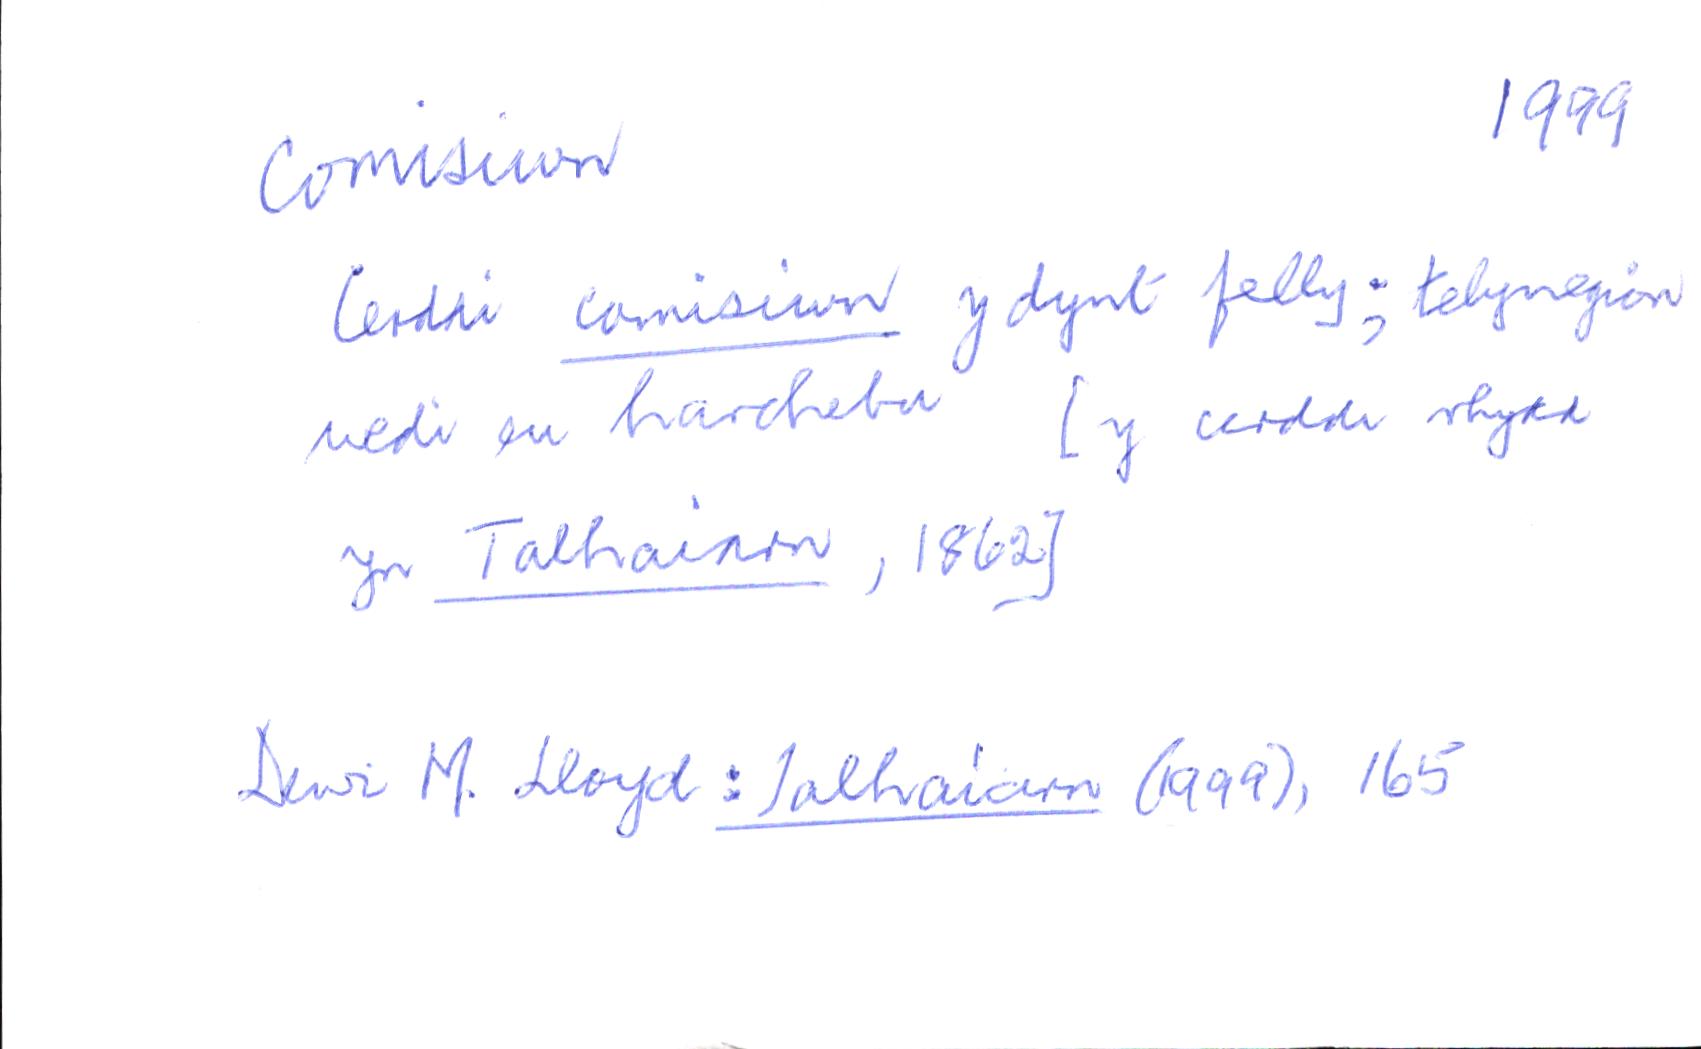 1999
Comisiwn
Cerddi comisiwn ydynt felly; telynegion
wedi eu harchebu [y cerddi rhydd
yn Talhaiarn, 1862]
Dewi M. Lloyd: Talhaiarn (1999), 165